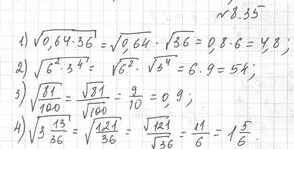 №8.35
1) √(0,64·36) = √0,64 · √36 = 0,8·6 = 4,8;
2) √(6²·3⁴) = √6² · √3⁴ = 6·9 = 54;
3) √(81/100) = √81/√100 = 9/10 = 0,9;
4) √(3 13/36) = √(121/36) = √121/√36 = 11/6 = 1 5/6.